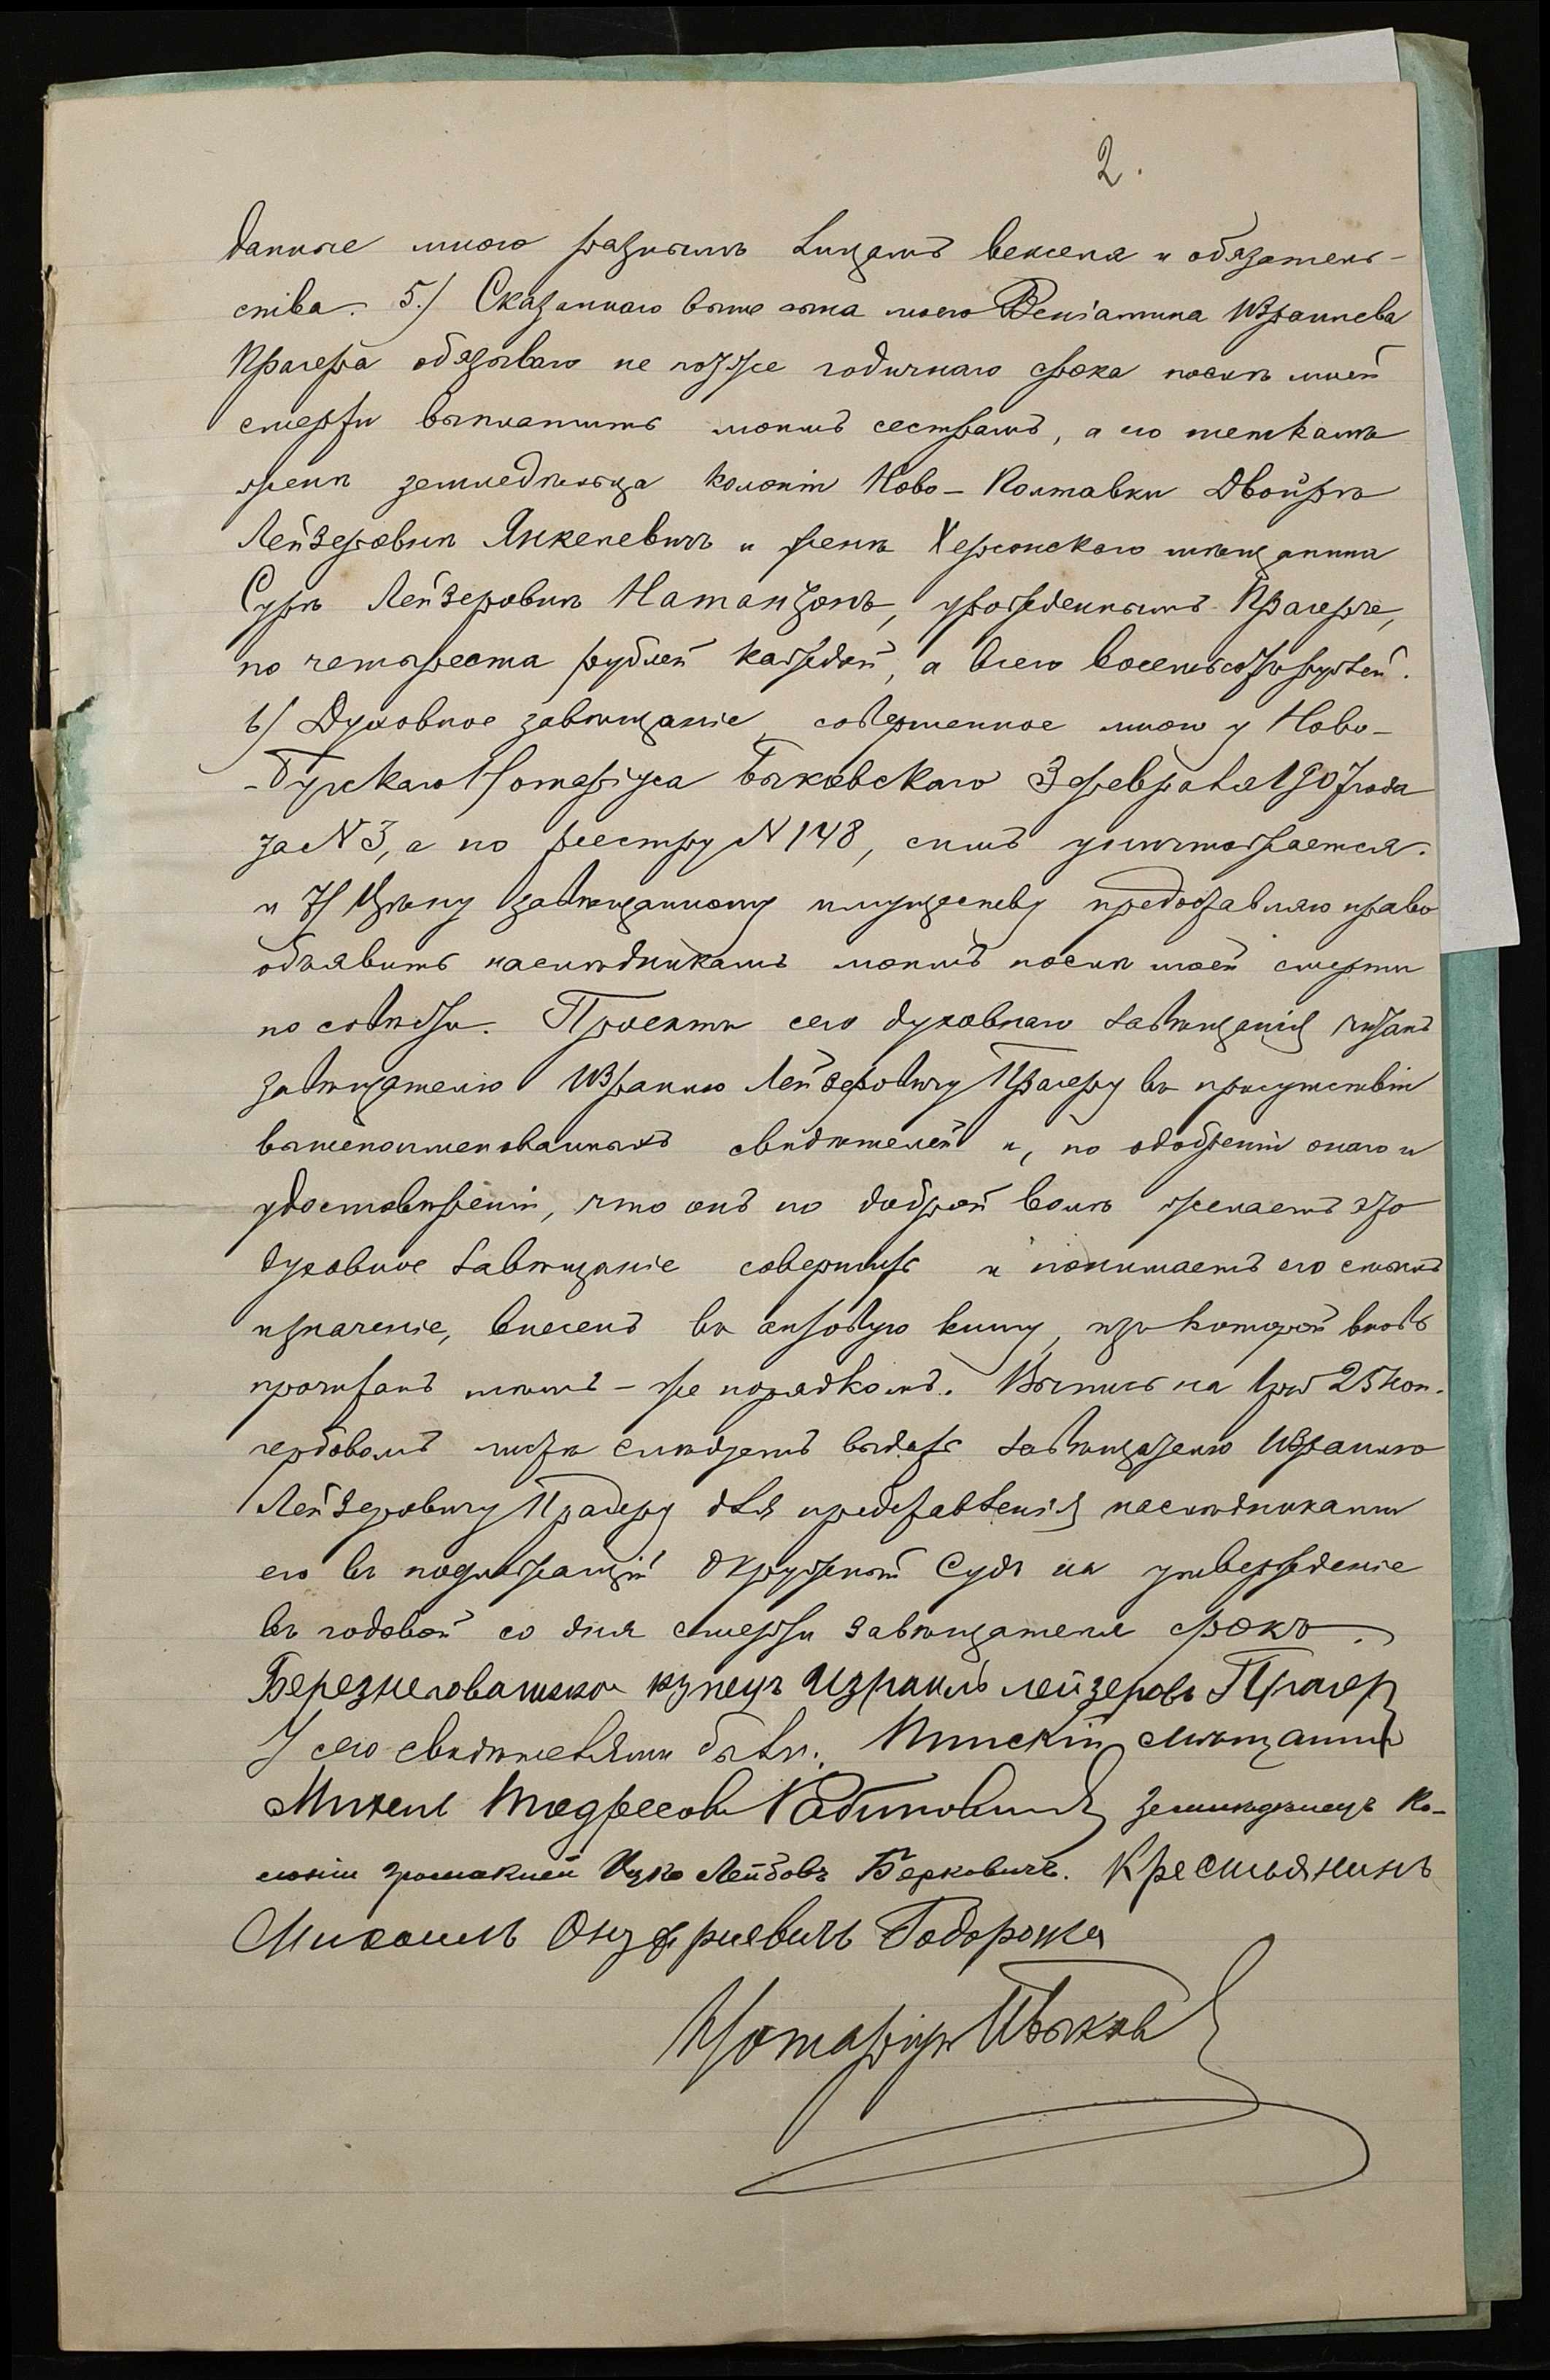 2.
данные мною разнымъ лицамъ векселя и обязатель-
ства. 5./ Сказаннаго выше сына моего Веніамина Израилева
Прагера обязываю не позже годичнаго срока послѣ моей
смерти выплатить моимъ сестрамъ, а его теткамъ
женѣ земледѣльца колоніи Ново-Полтавки Двойрѣ
Лейзеровнѣ Янкелевичъ и женѣ Херсонскаго мѣщанина
Сурѣ Лейзеровнѣ Натанзонъ, урожденнымъ Прагеръ,
по четыреста рублей каждой, а всего восемьсотъ рублей.
6/ Духовное завѣщаніе, совершенное мною у Ново-
-Бугскаго Нотаріуса Быковскаго 3 февраля 1907 года
за N 3, а по реестру N 148, симъ уничтожается.
и 7/ Цѣну завѣщанному имуществу предоставляю право
объявить наслѣдникамъ моимъ послѣ моей смерти
по совѣсти. Проектъ сего духовнаго завѣщанія читанъ
завѣщателю Израилю Лейзеровичу Прагеру въ присутствіи
вышепоименованныхъ свидѣтелей и, по одобреніи онаго и
удостовѣреніи, что онъ по доброй волѣ желаетъ это
духовное завѣщаніе совершить и понимаетъ его смыслъ
и значеніе, внесенъ въ актовую книгу, изъ которой вновь
прочитанъ тѣмъ-же порядкомъ. Выпись на 1 руб 25 коп.
гербовомъ листѣ слѣдуетъ выдать завѣщателю Израилю
Лейзеровичу Прагеру для представленія наслѣдниками
его въ подлежащій Окружный Судъ на утвержденіе
въ годовой со дня смерти завѣщателя срокъ.
Березнеговатскій купецъ Израиль лейзеровъ Прагер
У сего свидѣтелями были: Пинскій мѣщанинъ
Михель Тодресовъ Рабиновичъ земледѣлецъ Ко-
лоніи Громаклей Ицко Лейбовъ Берковичъ. Крестьянинъ
Михаилъ Онуфриевичь Годорожа
Нотаріусъ Быков